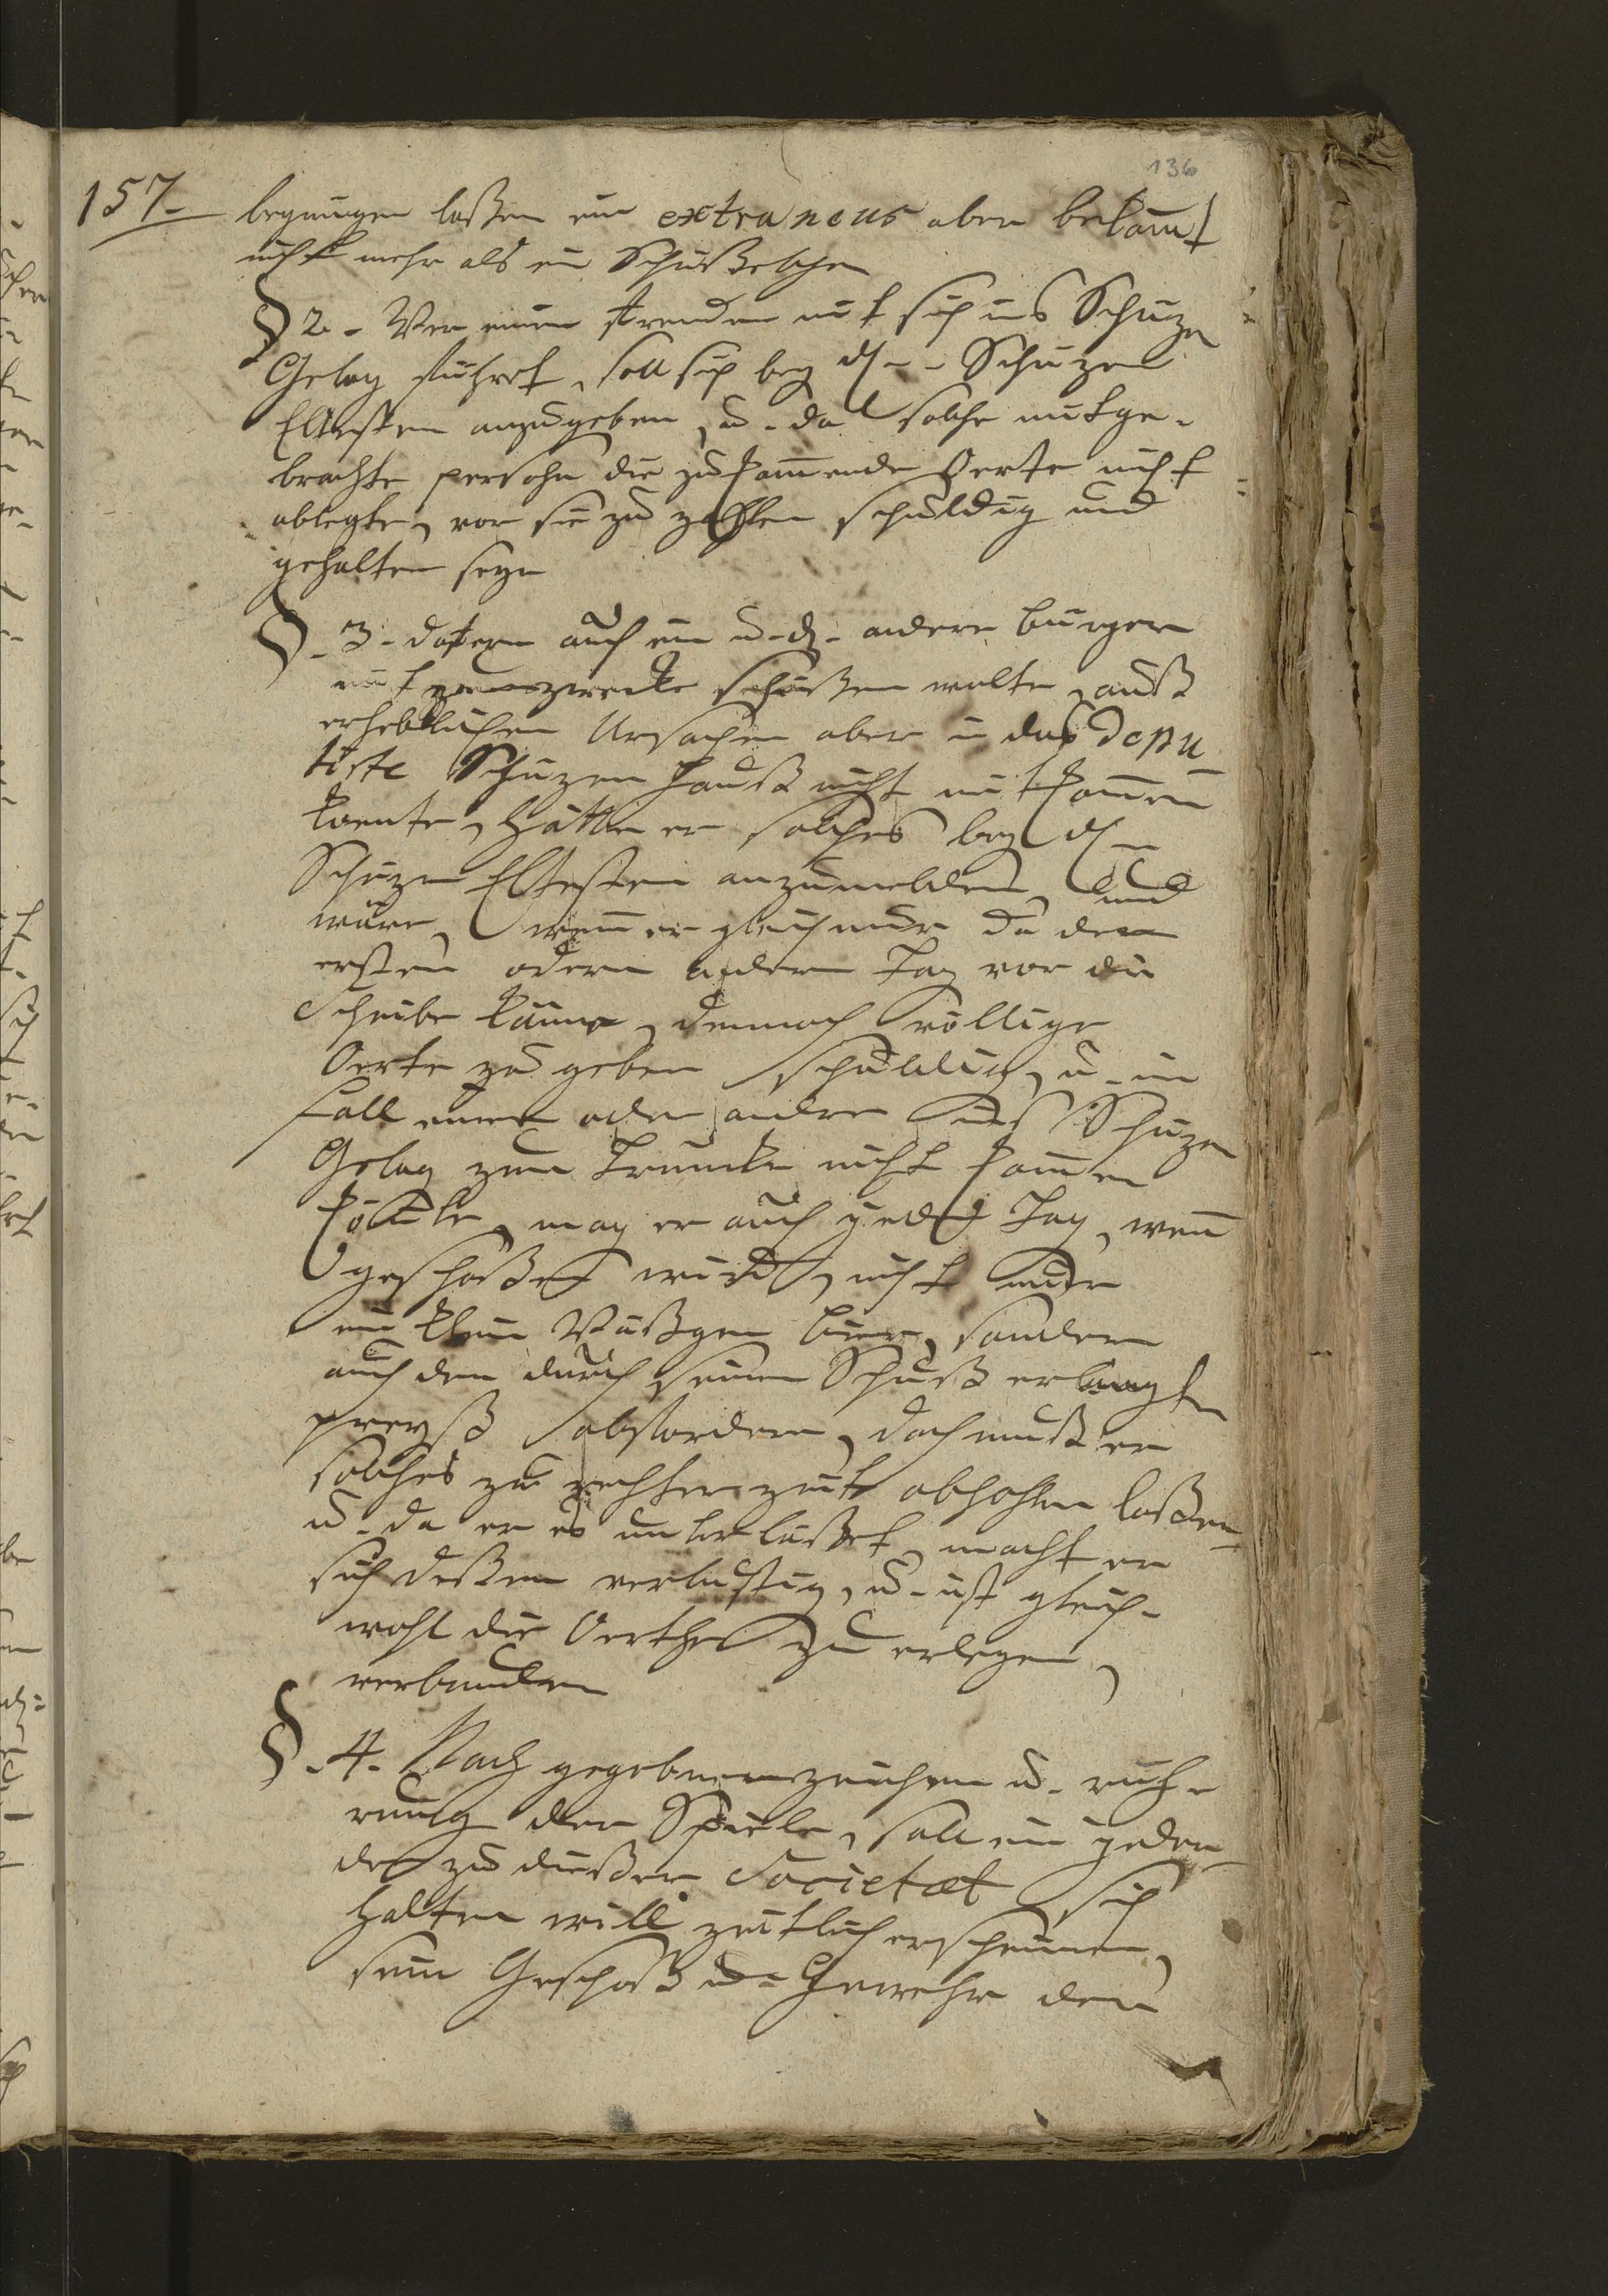 136
157.
begnügen laßen ein extraneus aber bekom̄t
nicht mehr als ein Schußelchen
§ 2. Wer einen frembden mit sich ins Schüzen
Gelag führet, soll sich bey d. Schüzen
Eltesten anzugeben, u. da solche mitge-
brachte persohn die zukom̄ende Oerte nicht
ablegte, vor sie zu zahlen schuldig und
gehalten seyn
§. 3. dafern auch ein u. d. andere bürger
mit zwecke schießen wolte, auß
erheblichen Ursachen aber in das Depu
tirte Schüzen Hauß nicht mit kom̄en
koente, hätte er solches bey d.
Schüzen Eltesten anzumelden, und
wäre, wen̄ er gleich nur da den
ersten odern andern Tag vor die
Scheibe käme, dennoch völlige
Oerte zu geben schuldig, u. im
fall einer oder ander ins Schüzen
Gelag zum Trunke nicht kom̄en
könte, mag er auch jeden Tag, wen̄
geschoßen wird, nicht nur
ein klein Väßgen bier, sondern
auch den durch seinen Schuß erlangten
preyß abfordern, doch muß er
solches zu rechter zeit abhohlen laßen
u. da er es unterläßet, macht er
sich deßen verlustig, u. ist gleich-
wohl die Oerthe zu erlegen,
verbunden
§. 4. Nach gegebenen zeichen u. rüh-
rung der Spiele, soll ein jeder
der zu dießer Societæt sich
halten will zeitlich erscheinen,
sein Geschoß u. Gewehr den